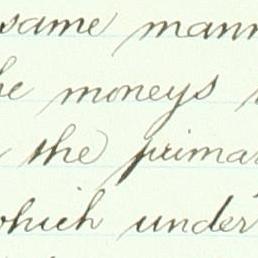 same mann
he moneys
the primar
which under